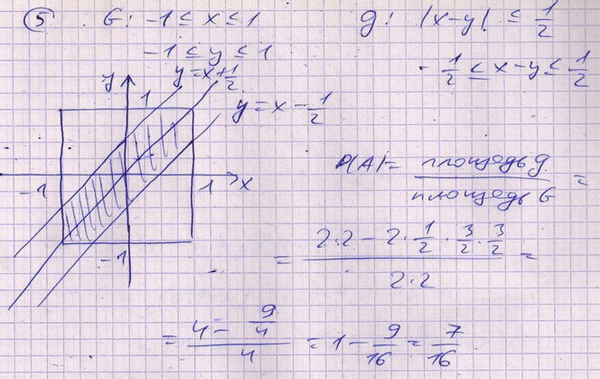 5 G: -1 ≤ x ≤ 1 g: |x-y| ≤ 1/2
-1 ≤ y ≤ 1
- 1/2 ≤ x-y ≤ 1/2
y=x+1/2
y
1
y = x - 1/2
-1
1
x
-1
P(A)= площадь g / площадь G =
= (2·2 - 2·1/2·3/2·3/2) / (2·2) =
= (4 - 9/4) / 4 = 1 - 9/16 = 7/16